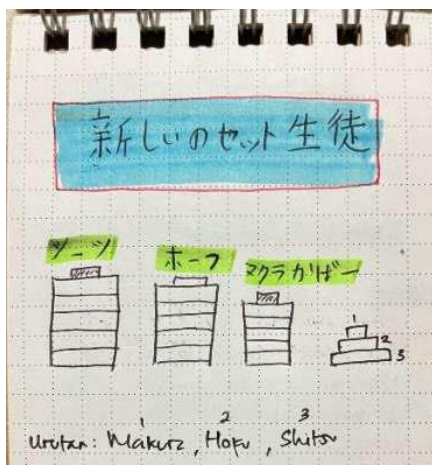 新しいのセット生徒
シーツ ホーフ マクラかばー
1
2
3
1 2 3
Urutan: Makura, Hofu, Shitsu